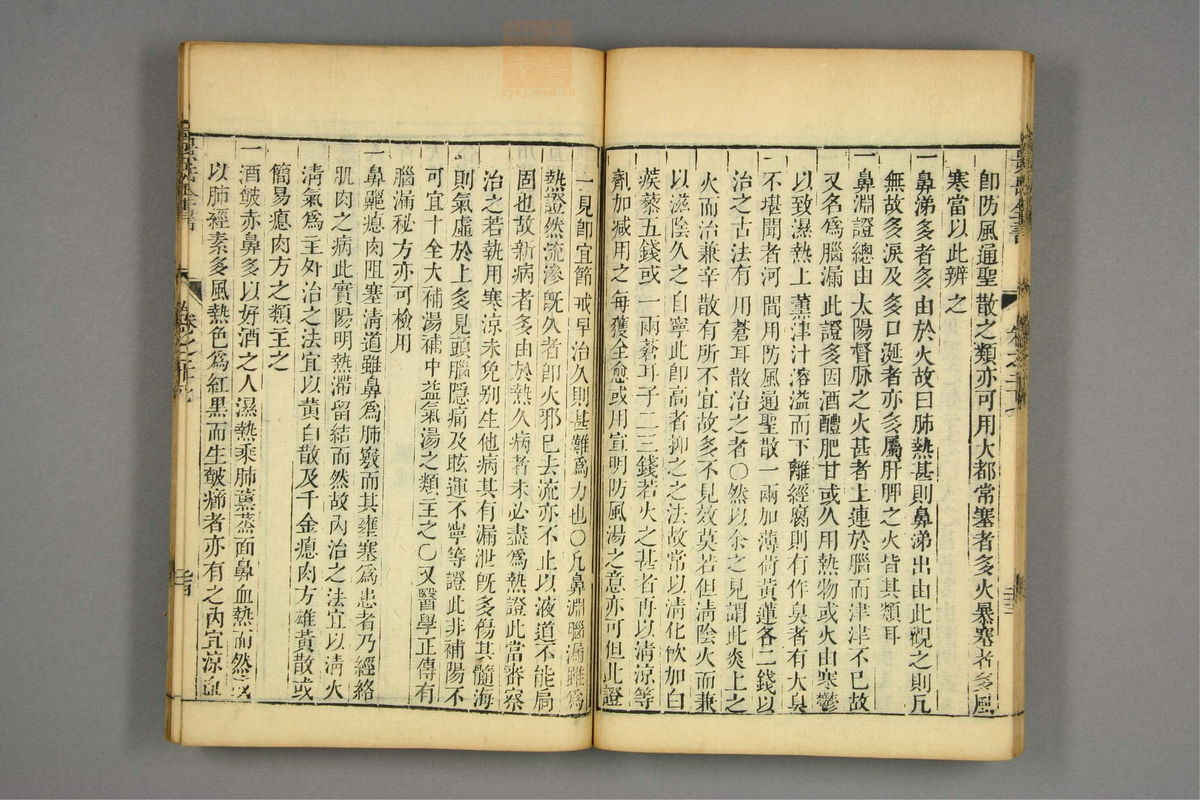 卽防風通聖散之類亦可用大都常塞者多火暴塞者多風
寒當以此辨之
一鼻涕多者多由於火故曰肺熱甚則鼻涕出由此觀之則凡
無故多淚及多口涎者亦多屬肝脾之火皆其類耳
一鼻淵證總由太陽督脉之火甚者上連於腦而津津不已故
又名為腦漏此證多因酒醴肥甘或久用熱物或火由寒鬱
以致濕熱上薰津汁溶溢而下離經腐敗有作臭者有大臭
不堪聞者河間用防風通聖散一兩加薄荷黃蓮各二錢以
治之古法有用蒼耳散治之者〇然以余之見謂此炎上之
火而治兼辛散有所不宜故多不見效莫若但淸陰火而兼
以滋陰久之自寧此卽高者抑之之法故常以淸化飲加白
蒺藜五錢或一兩蒼耳子二三錢若火之甚者再以淸凉等
劑加減用之每獲全愈或用宣明防風湯之意亦可但此證
一見卽宜節戒早治久則甚難為力也〇凡鼻淵腦漏雖為
熱證然流滲旣久者卽火邪已去流亦不止以液道不能扃
固也故新病者多由於熱久病者未必盡為熱證此當審察
治之若執用寒涼未免别生他病其有漏泄旣多傷其髓海
則氣虛於上多見頭腦隱痛及眩運不寧等證此非補陽不
可宜十全大補湯補中益氣湯之類主之〇又醫學正傳有
腦漏秘方亦可檢用
一鼻齆瘜肉阻塞淸道雖鼻為肺竅而其壅塞為患者乃經絡
肌肉之病此實陽明熱滯留結而然故內治之法宜以淸火
淸氣為主外治之法宜以黃白散及千金瘜肉方雄黃散或
簡易瘜肉方之類主之
一酒皶赤鼻多以好酒之人濕熱乘肺薰蒸面鼻血熱而然或
以肺經素多風熱色為紅黑而生皶癤者亦有之內宜涼血
卷之二十七
卷之二十七